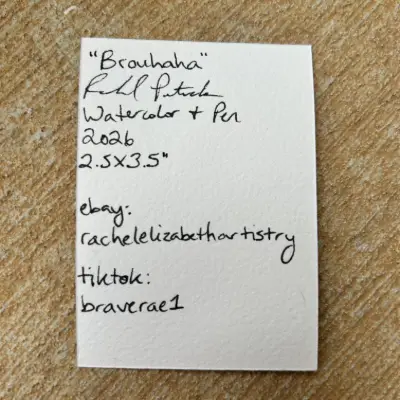 "Brouhaha"
Watercolor + Pen
2026
2.5x3.5"
ebay:
rachelelizabethartistry
tiktok:
braverae1